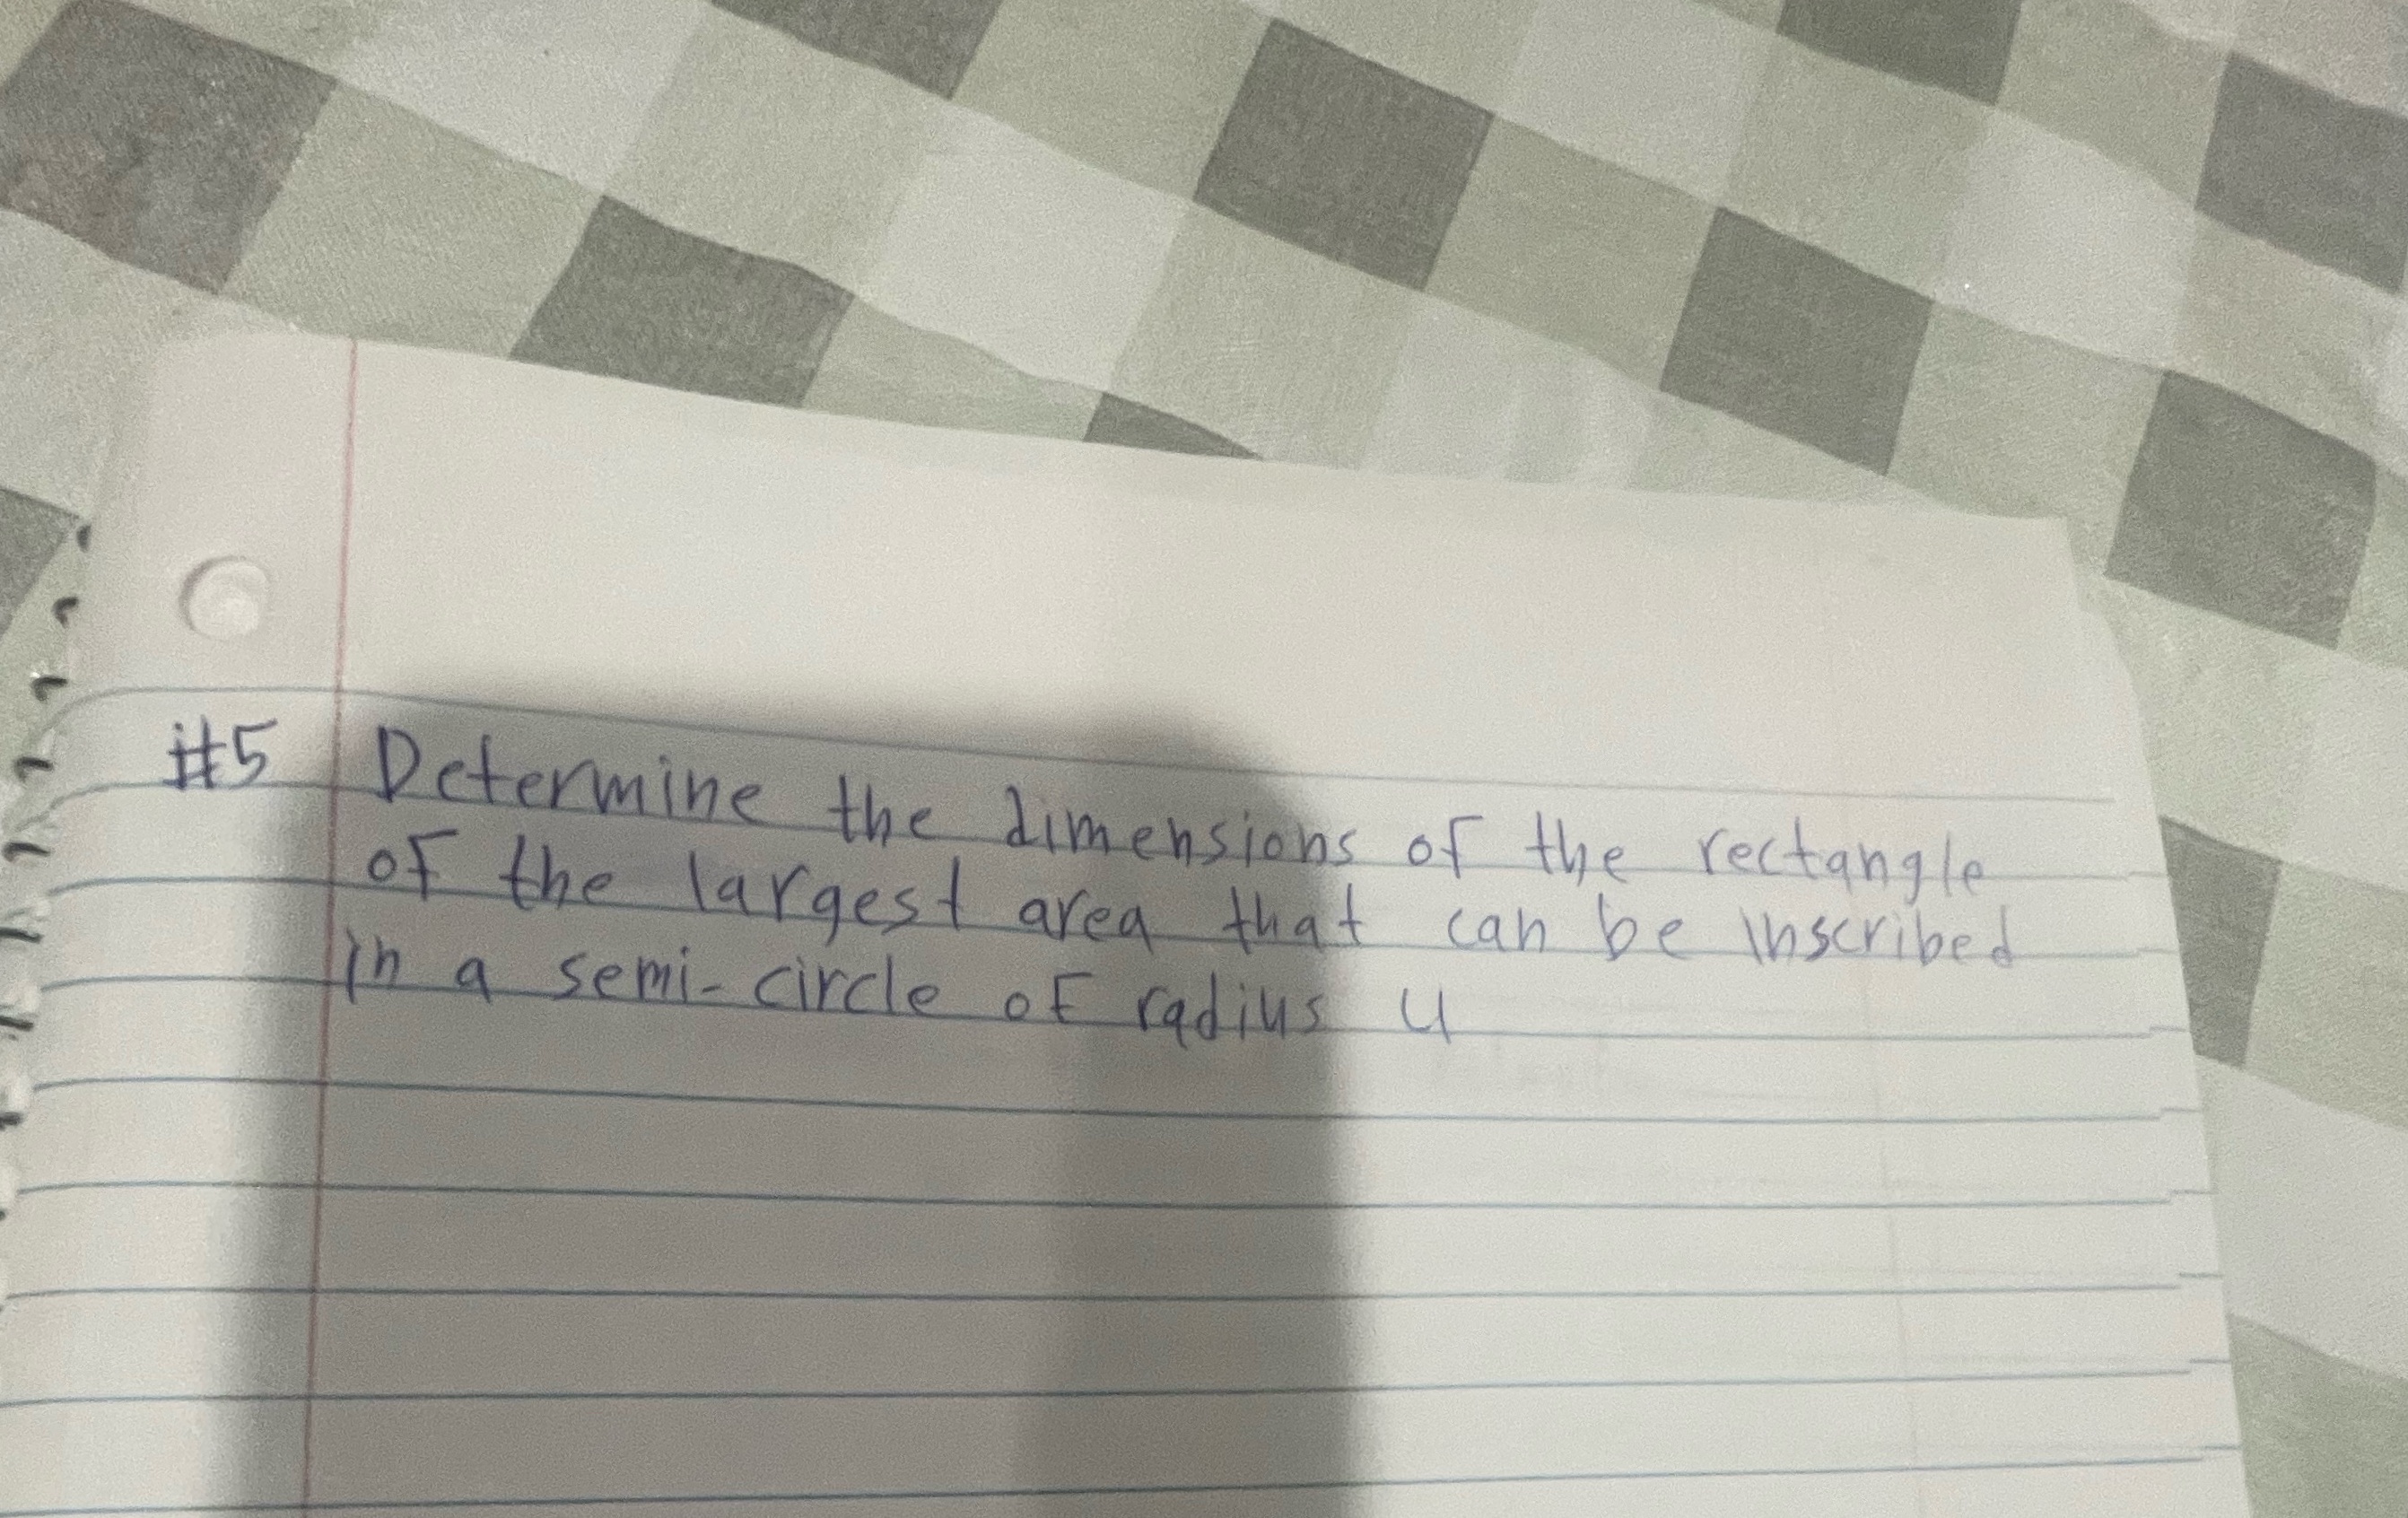 #5 Determine the dimensions of the rectangle
of the largest area that can be inscribed
in a semi-circle of radius 4